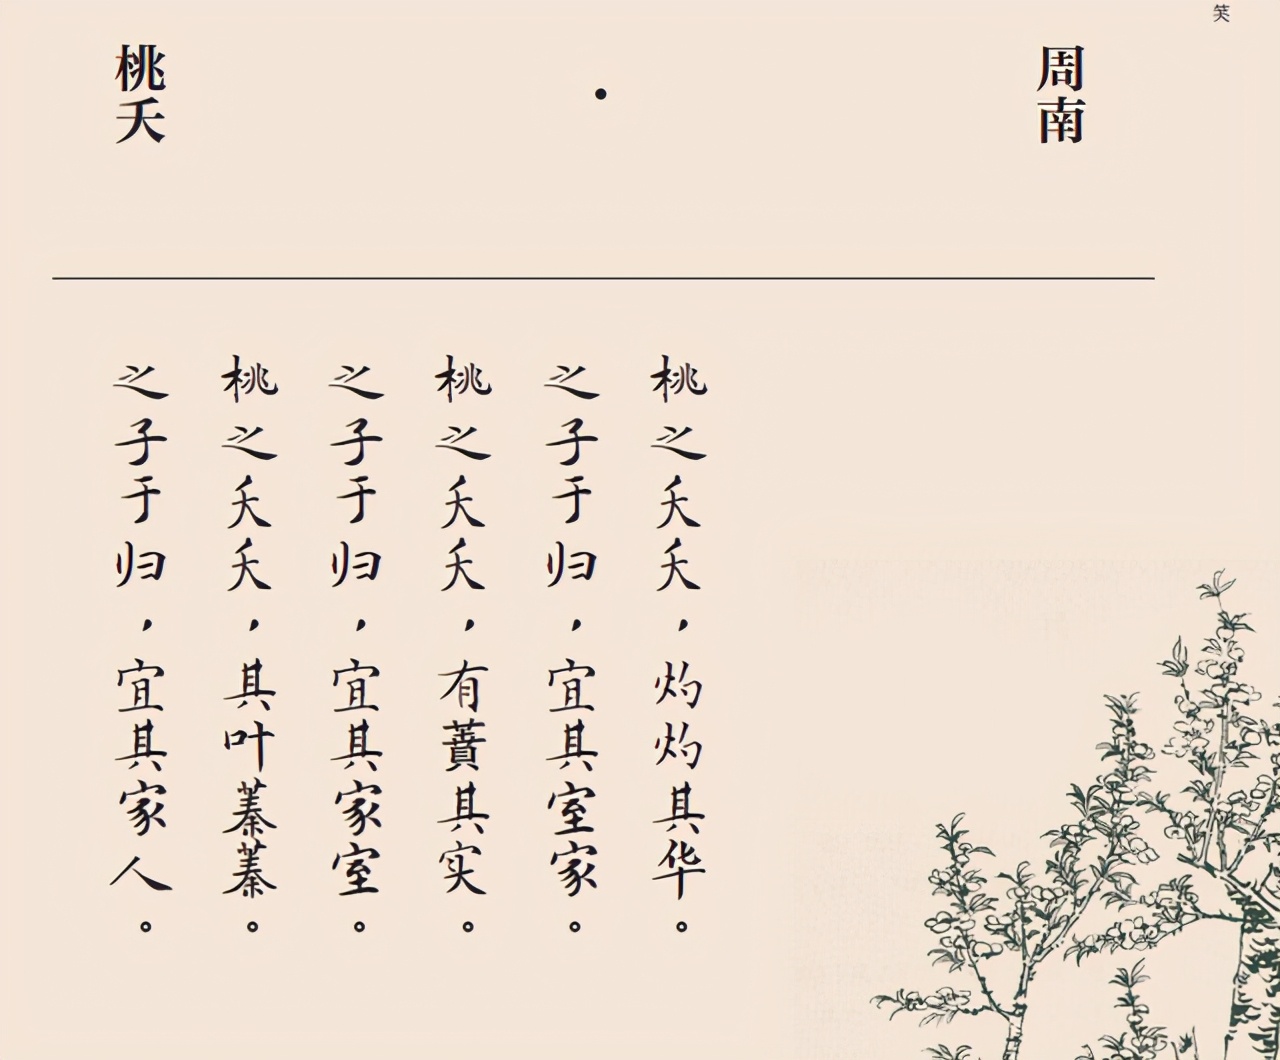 笑
周南
·
桃夭
桃之夭夭，灼灼其华。
之子于归，宜其室家。
桃之夭夭，有蕡其实。
之子于归，宜其家室。
桃之夭夭，其叶蓁蓁。
之子于归，宜其家人。